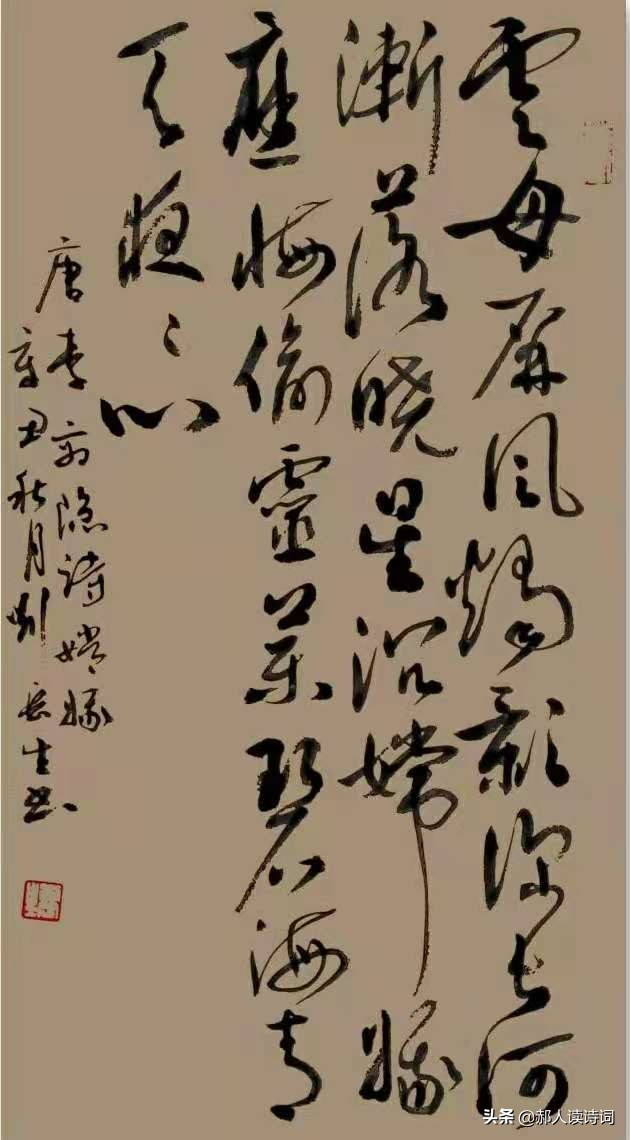 雲母屏風燭影深長河
漸落曉星沉嫦娥
應悔偷靈藥碧海青
天夜〻心
唐李商隱詩嫦娥
辛丑秋月劉岳生书
头条 @郝人读诗词